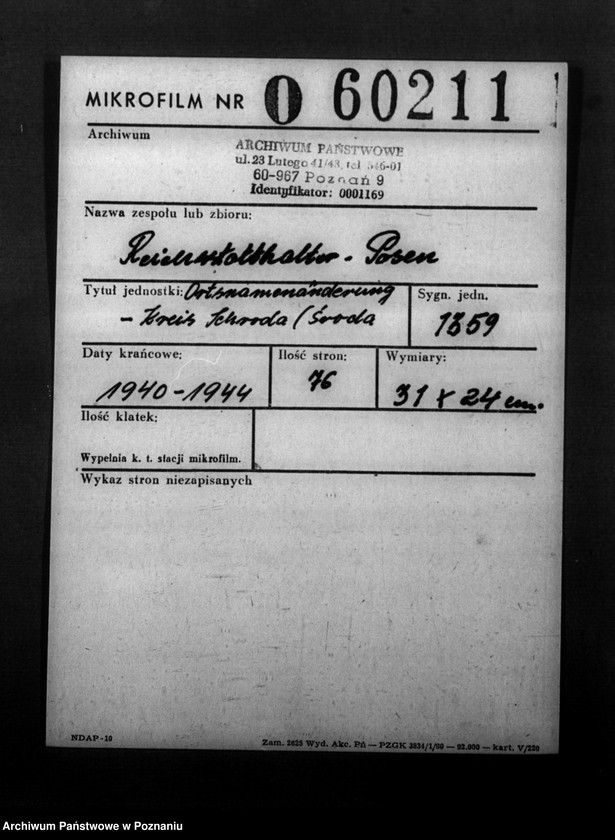 MIKROFILM NR O 60211
Archiwum
ARCHIWUM PAŃSTWOWE
ul. 23 Lutego 41/43, tel 546-01
60-967 Poznań 9
Identyfikator: 0001169
Nazwa zespołu lub zbioru:
Reichsstatthalter - Posen
Tytuł jednostki: Ortsnamenänderung
- Kreis Schroda (Środa
Sygn. jedn.
1359
Daty krańcowe:
1940-1944
Ilość stron:
76
Wymiary:
31 x 24 cm.
Ilość klatek:
Wypełnia k. t. stacji mikrofilm.
Wykaz stron niezapisanych
NDAP-10
Zam. 2825 Wyd. Akc. Pń — PZGK 3034/1/80 — 92.000 — kart. V/220
Archiwum Państwowe w Poznaniu